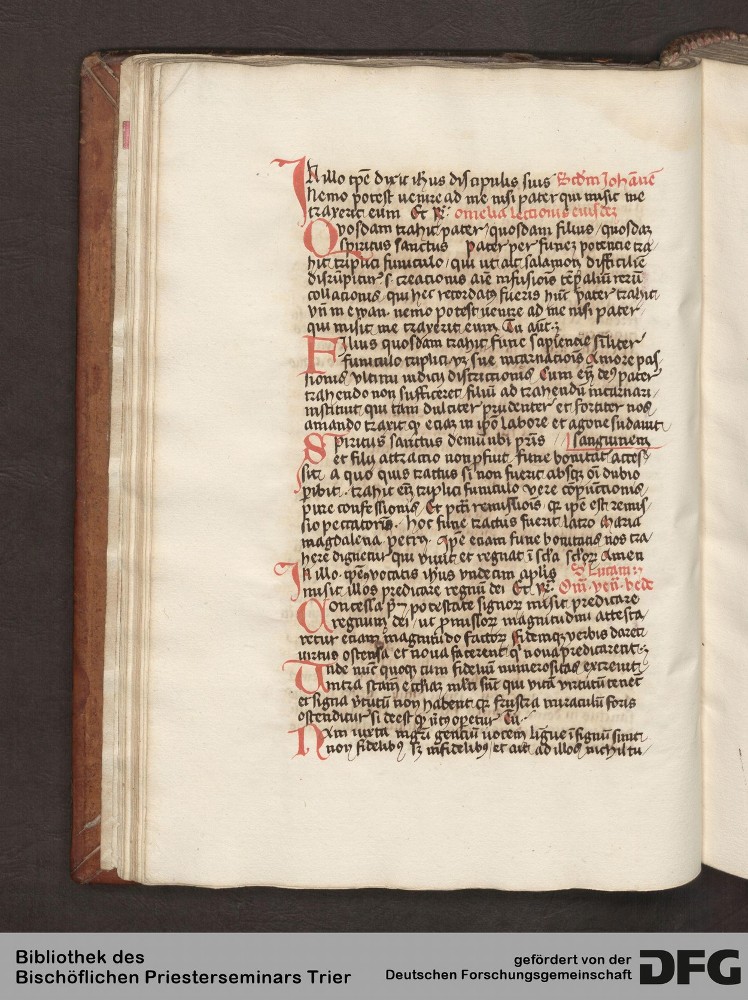 In illo tp̄e dixit ih̄us discipulis suis Scd̄m Joh̄ane
Nemo potest uenire ad me nisi pater qui misit me
traxerit eum Et Rͣ. omelia lectionis eiusdē
Quosdam trahit pater / quosdam filius / quosdam
spiritus sanctus Pater per funes potencie tra
hit triplici funiculo / qui ut ait salamon difficile
disrūpitur s. creacionis aīe infusionis tēp̄aliū rerū
collacionis qui hec recordatꝰ fueris hūc pater trahit
vn̄ in ewan. nemo potest uenire ad me nisi pater
qui misit me traxerit eum Tu aūt
Filius quosdam trahit fune sapiencie sīliter
funiculo triplici vꝫ sue incarnacōis Amore pas
sionis vltimi iudicij districcionis Cum em̄ deꝰ pater
trahendo non sufficeret filiū ad trahendū incarnari
instituit qui tam dulciter prudenter et fortiter nos
amando traxit qꝫ eciam in ip̄o labore et agone sudauit
Spiritus sanctus demū ubi p̄ris sanguinem
et filij attractio non ꝓfuit fune bonitatis acces
sit a quo quis tractus si non fuerit absqꝫ oī dubio
ꝑibit. trahit em̄ triplici funiculo vere cōpūctionis
pure confessionis Et pctī remissionis qꝫ ip̄e est remis
sio peccatorū. hoc fune tractus fuerit latro Maria
magdalena petrꝰ Ip̄e eciam fune bonitatis nos tra
here dignetur qui viuit et regnat ī sc̄la sc̄lorꝫ Amen
In illo tp̄e ꝯuocatis ih̄us vndecim ap̄lis S Lucam
misit illos predicare regnū dei Et Rͣ. Om̄. ven̄. bede
Concessa p̄ꝰ potestate signorꝫ misit predicare
regnum dei / ut ꝓmissorꝫ magnitudini attesta
retur eciam magnitudo factorꝫ fidemqꝫ verbis daret
uirtus ostensa et noua facerent q̇ noua predicarent
Unde nūc quoqꝫ cum fidelium numerositas excreuit
intra sc̄am ecc̄iaꝫ ml̄ti sūt qui vitā virtutū tenēt
et signa v̄tutū non habent qꝫ frustra miraculū foris
ostenditur si deest qꝫ īt̄ꝰ operetur Tu
Nam iuxta mḡri gentiū uocem ligwe ī signū sunt
non fidelibꝰ sꝫ infidelibꝰ et ait ad illos nichil tu
Bibliothek des
Bischöflichen Priesterseminars Trier
gefördert von der
Deutschen Forschungsgemeinschaft DFG